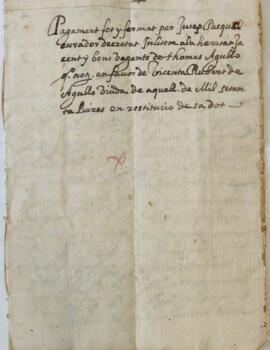 Pagament fet y fermat per Jusep Pasqual
curador decretat Insutem a la haretat Ja
cent y bens vagants de Thomas Agullo
qº. noṭ. en favor de Vicenta
Agullo Viuda de aquell de Mil setan
ta lliures en restitucio de sa dot